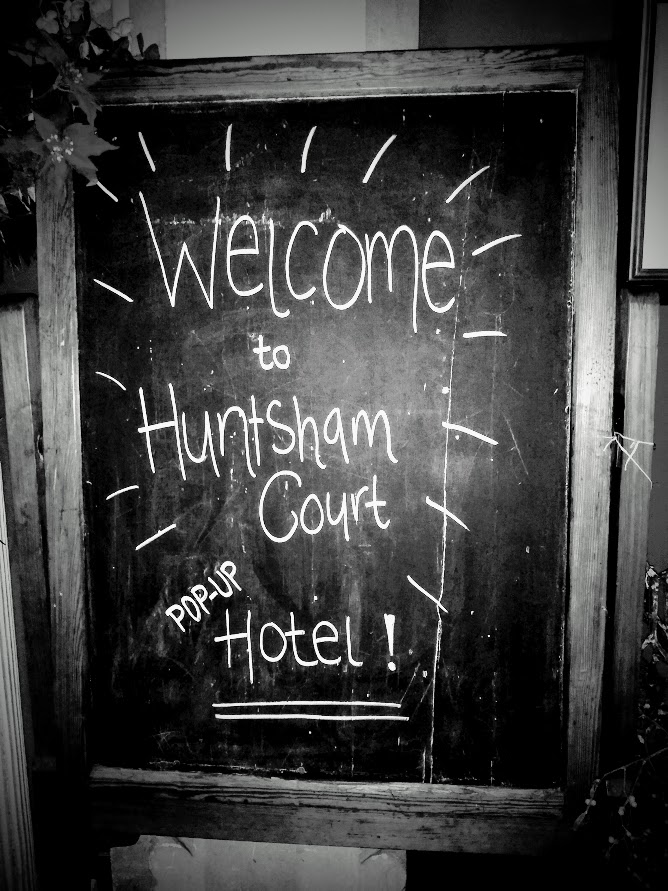 Welcome
to
Huntsham
Court
POP-UP
Hotel!